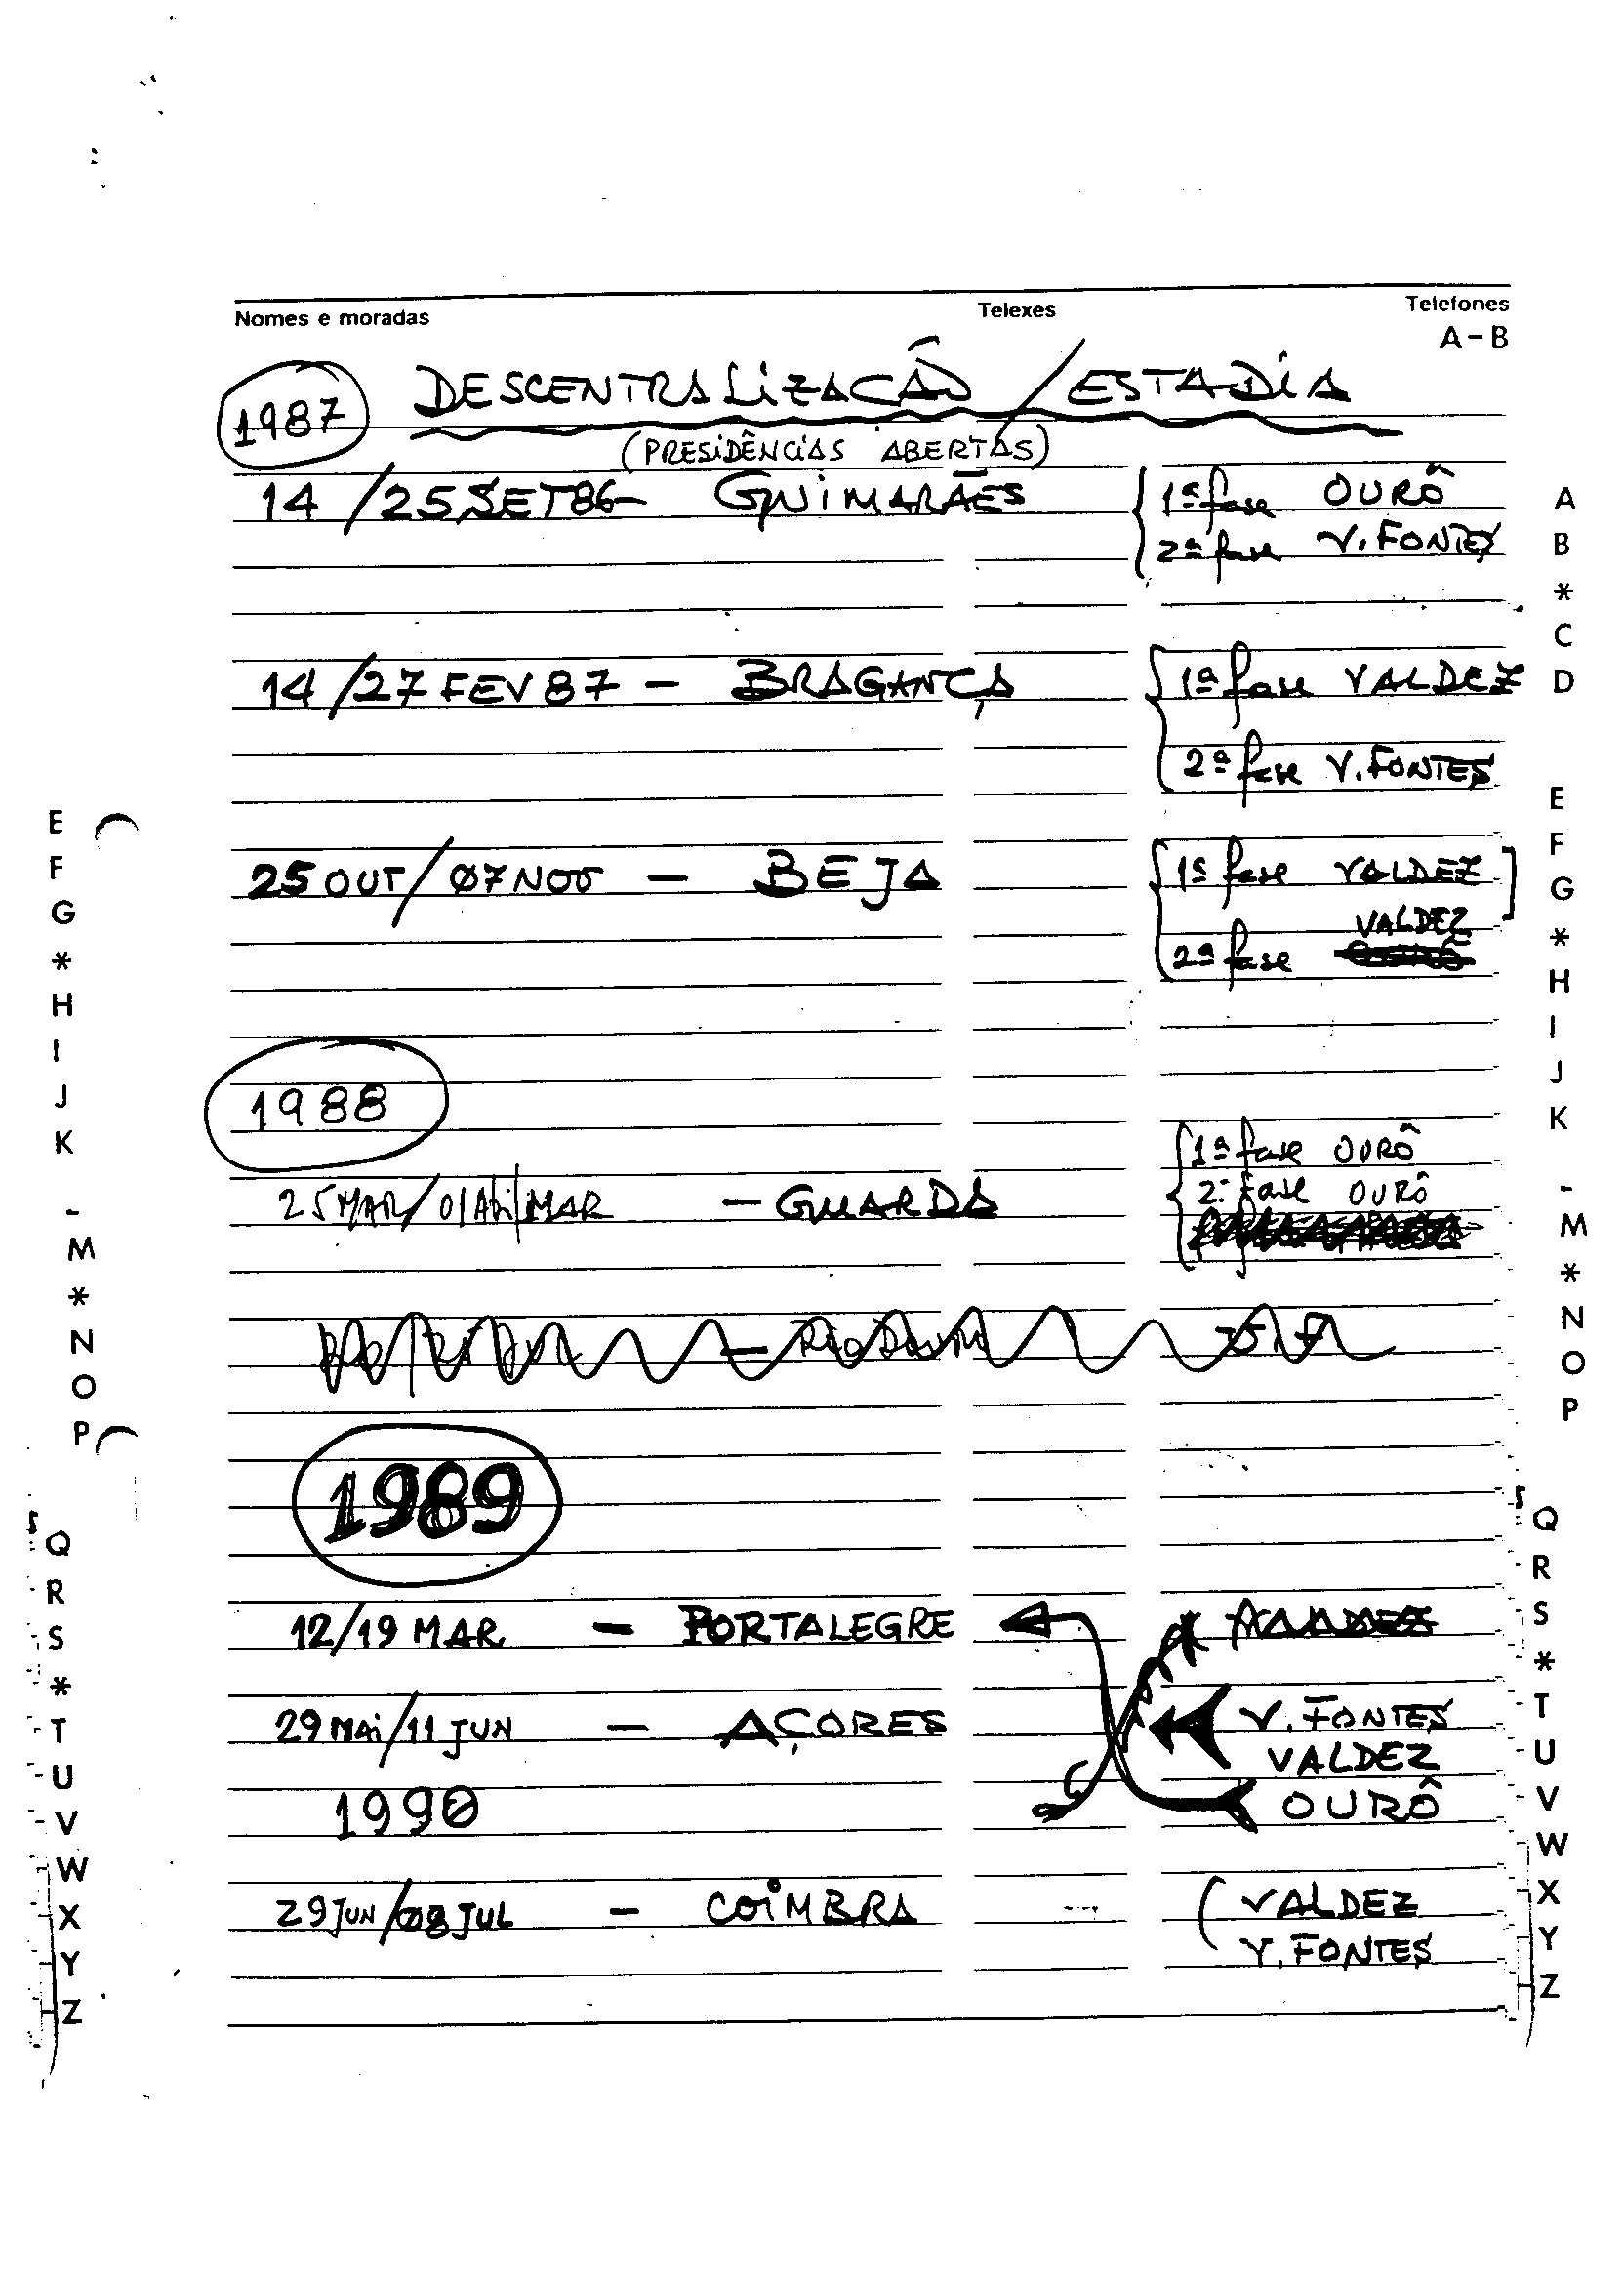 Nomes e moradas Telexes Telefones
A-B
1987 DESCENTRALIZAÇÃO / ESTADIA
(PRESIDÊNCIAS ABERTAS)
14/25 SET 86 - GUIMARÃES 1ª fase OURÔ
2ª fase V. FONTES
14/27 FEV 87 - BRAGANÇA 1ª fase VALDEZ
2ª fase V. FONTES
25 OUT/07 NOV - BEJA 1ª fase VALDEZ
VALDEZ
2ª fase
1988
1ª fase OURÔ
25 MAR/01 MAR - GUARDA 2ª fase OURÔ
1989
12/19 MAR - PORTALEGRE
29 MAI/11 JUN - AÇORES V. FONTES
VALDEZ
1990 OURÔ
29 JUN/08 JUL - COIMBRA VALDEZ
V. FONTES
A
B
*
C
D
E
F
G
*
H
I
J
K
-
M
*
N
O
P
Q
R
S
*
T
U
V
W
X
Y
Z
E
F
G
*
H
I
J
K
-
M
*
N
O
P
Q
R
S
*
T
U
V
W
X
Y
Z